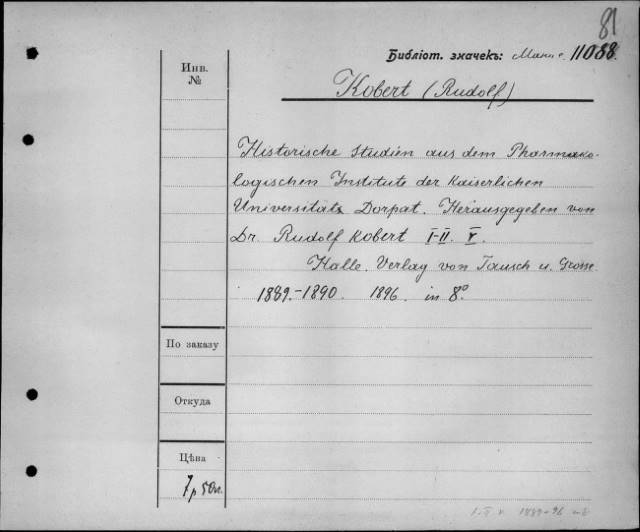 81
Библіот. значекъ: 11088
Инв.
№
Kobert (Rudolf)
Historische Studien aus dem Pharmako-
logischen Institute der Kaiserlichen
Universität Dorpat. Herausgegeben von
Dr. Rudolf Kobert I-II. V.
Halle. Verlag von Tausch u. Grosse
1889.-1890. 1896. in 8°
По заказу
Откуда
Цѣна
7 р 50 к.
I-II V 1889-96